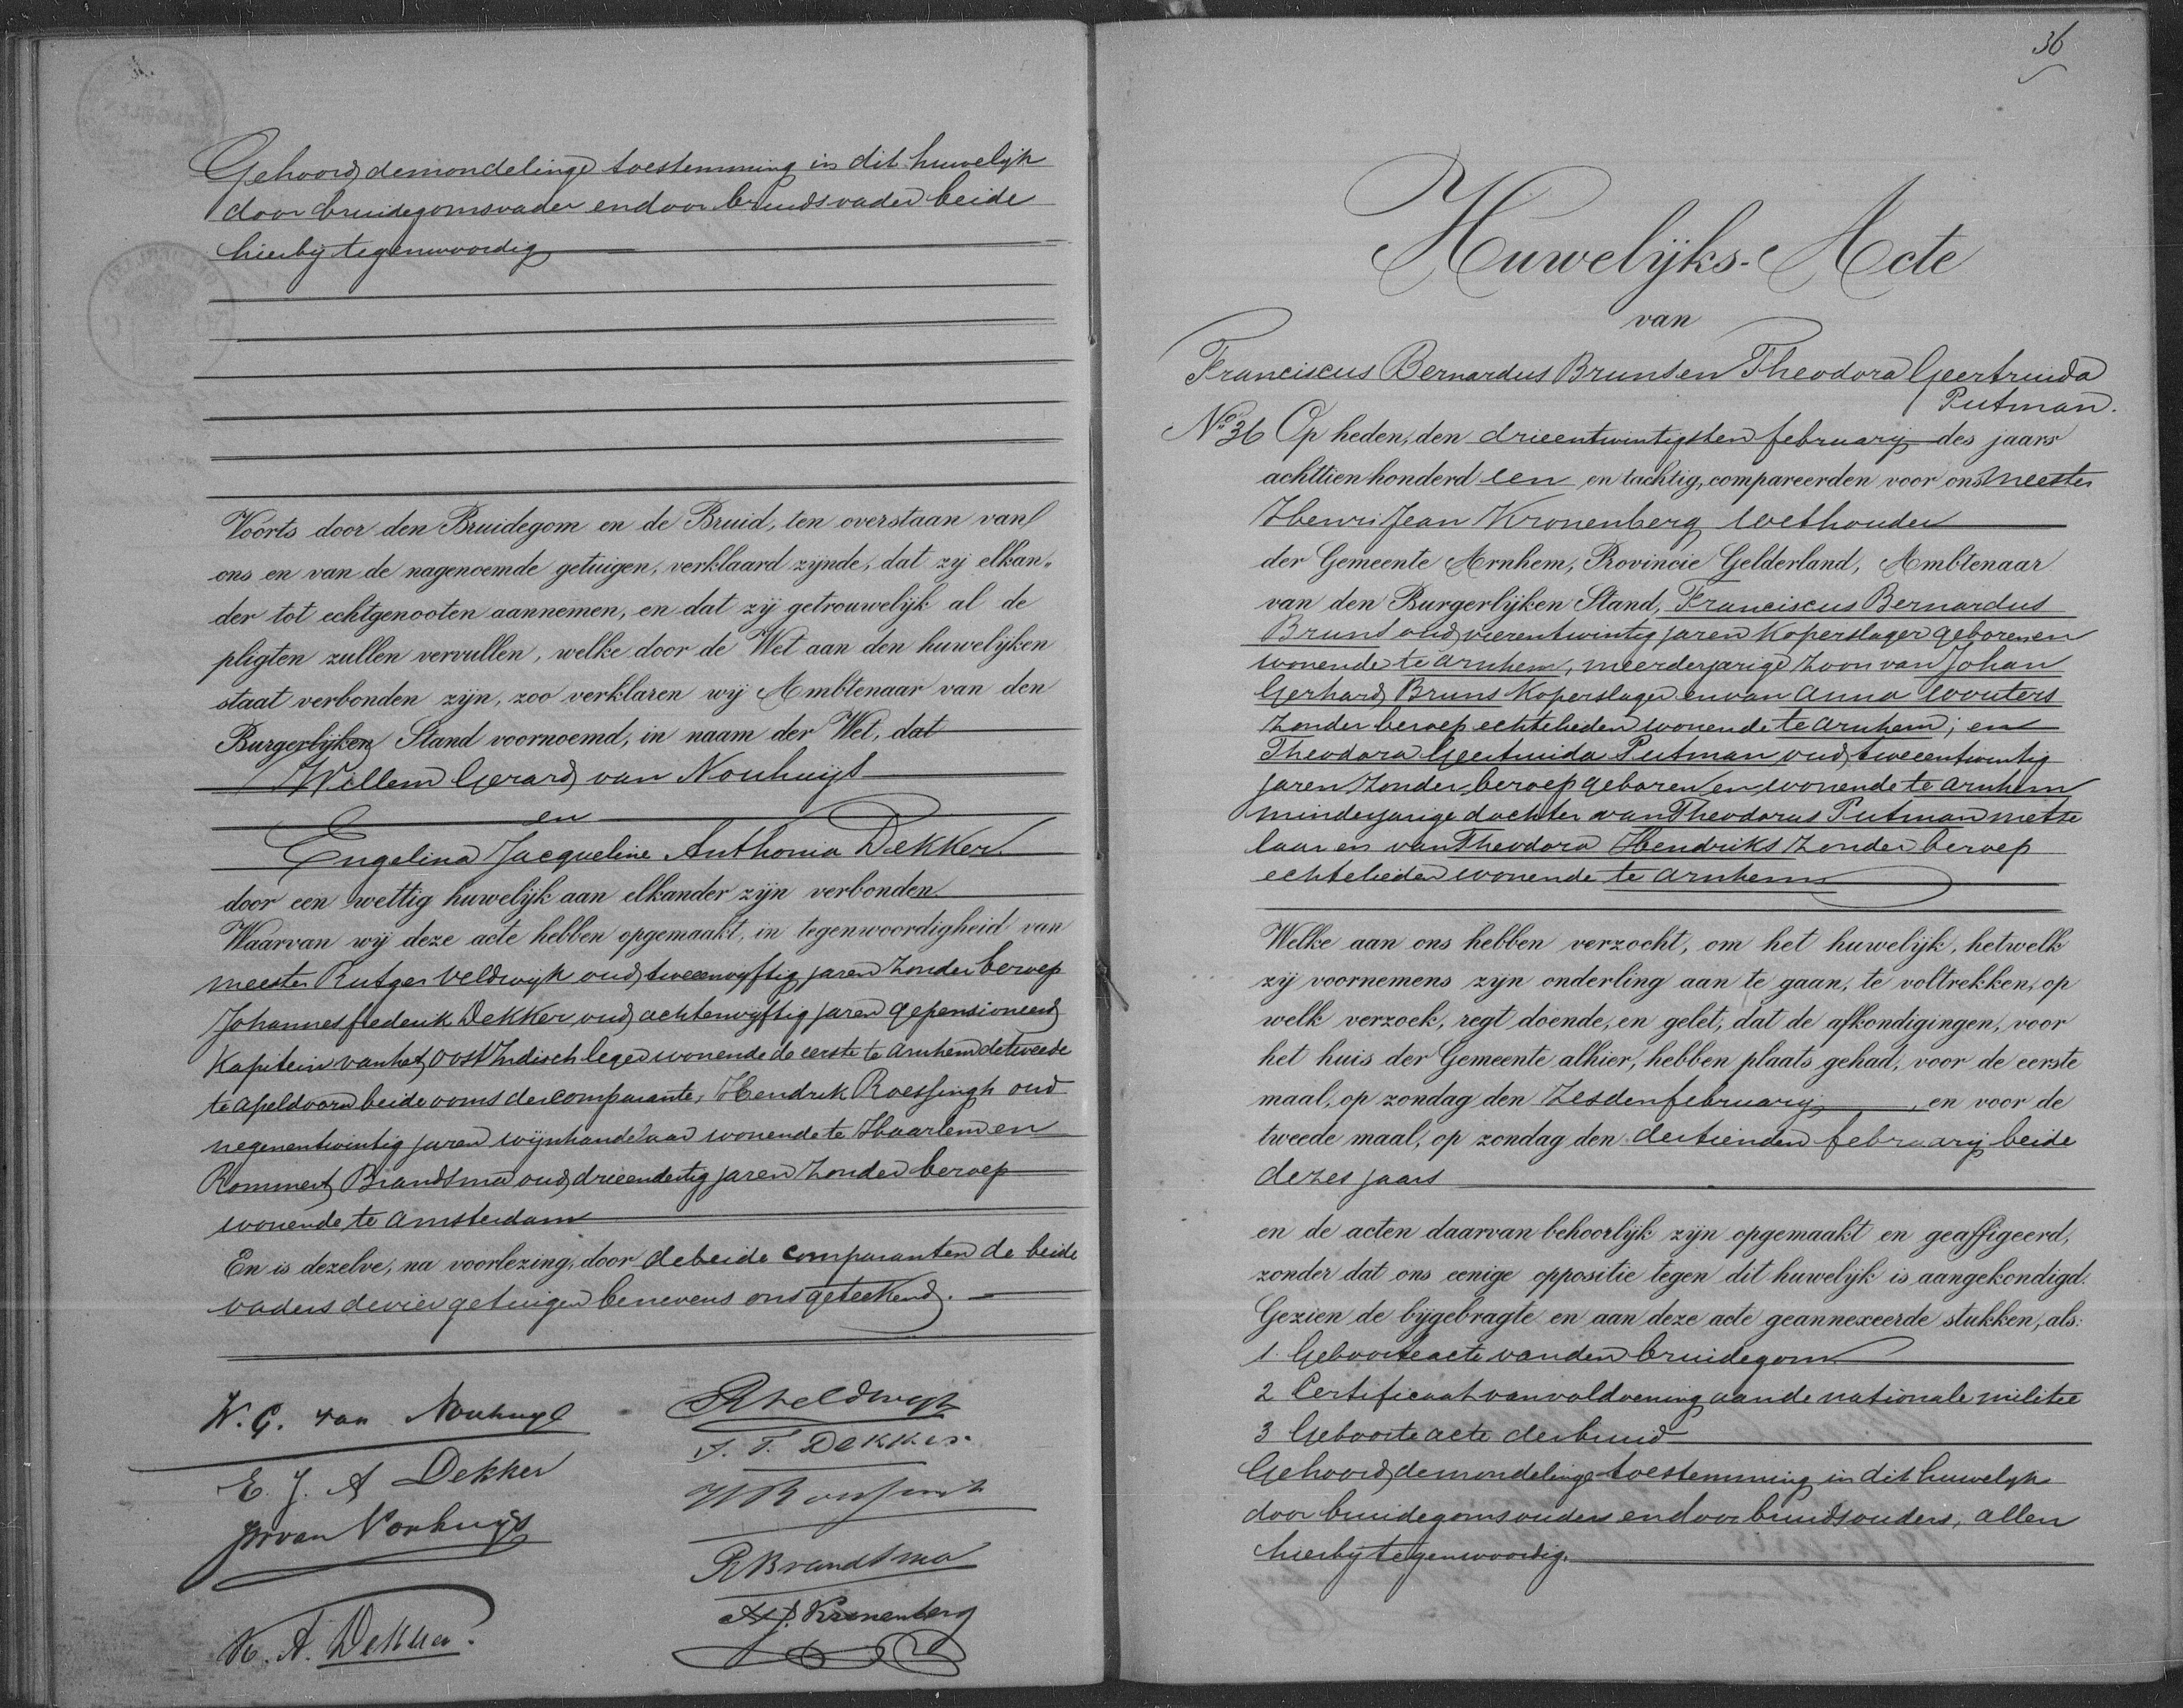 Gehoord de mondelinge toestemming in dit huwelijk
door bruidegomsvader en door bruidsvader beide
hierbij tegenwoordig
Voorts door den Bruidegom en de Bruid, ten overstaan van
ons en van de nagenoemde getuigen, verklaard zynde, dat zy elkan„
der tot echtgenooten aannemen, en dat zij getrouwelijk al de
pligten zullen vervullen, welke door de Wet aan den huwelijken
staat verbonden zijn, zoo verklaren wij Ambtenaar van den
Burgerlijken Stand voornoemd, in naam der Wet, dat
Willem Gerard van Nouhuijs
en
Engelina Jacqueline Anthonia Dekker
door een wettig huwelijk aan elkander zijn verbonden
Waarvan wij deze acte hebben opgemaakt, in tegenwoordigheid van
meester Rutger Veldwijk oud tweeenvyftig jaren zonder beroep
Johannes frederik Dekker oud achtenvyftig jaren gepensioneerd
Kapitein van het Oost Indisch leger wonende de eerste te Arnhem de tweede
te Apeldoorn beide ooms der comparante, Hendrik Roessingh oud
negenentwintig jaren wijnhandelaar wonende te Haarlem en
Rommert Brandsma oud drieendertig jaren zonder beroep
wonende te Amsterdam
En is dezelve, na voorlezing, door de beide comparanten de beide
vaders de vier getuigen benevens ons geteekend.
W. G. van Nouhuys
RVeldwijk
E. J. A Dekker
J. F. Dekker
van Nouhuijs
HRoessingh
RBrandsma
H. A. Dekker.
H.J. Kronenberg
36
Huwelijks-Acte
van
Franciscus Bernardus Bruns en Theodora Geertruida
Putman.
No. 36 Op heden, den drieentwintigsten februarij des jaars
achttien honderd een en tachtig, compareerden voor ons meester
Henri Jean Kronenberg Wethouder
der Gemeente Arnhem, Provincie Gelderland, Ambtenaar
van den Burgerlijken Stand, Franciscus Bernardus
Bruns oud vierentwintig jaren Koperslager geboren en
wonende te Arnhem, meerderjarige zoon van Johan
Gerhard Bruns Koperslager en van Anna Wouters
zonder beroep echtelieden wonende te Arnhem; en
Theodora Geertruida Putman oud tweeentwintig
jaren zonder beroep geboren en wonende te Arnhem
minderjarige dochter van Theodorus Putman metse
laar en van Theodora Hendriks zonder beroep
echtelieden wonende te Arnhem
Welke aan ons hebben verzocht, om het huwelijk, hetwelk
zij voornemens zijn onderling aan te gaan, te voltrekken, op
welk verzoek, regt doende, en gelet, dat de afkondigingen, voor
het huis der Gemeente alhier, hebben plaats gehad, voor de eerste
maal, op zondag den Zesden februarij, en voor de
tweede maal, op zondag den dertienden februarij beide
dezes jaars
en de acten daarvan behoorlijk zijn opgemaakt en geaffigeerd,
zonder dat ons eenige oppositie tegen dit huwelijk is aangekondigd.
Gezien de bijgebragte en aan deze acte geannexeerde stukken, als:
1. Geboorteacte van den bruidegom
2 Certificaat van voldoening aan de nationale militie
3 Geboorteacte der bruid
Gehoord de mondelinge toestemming in dit huwelijk
door bruidegomsouders en door bruidsouders, allen
hierbij tegenwoordig.